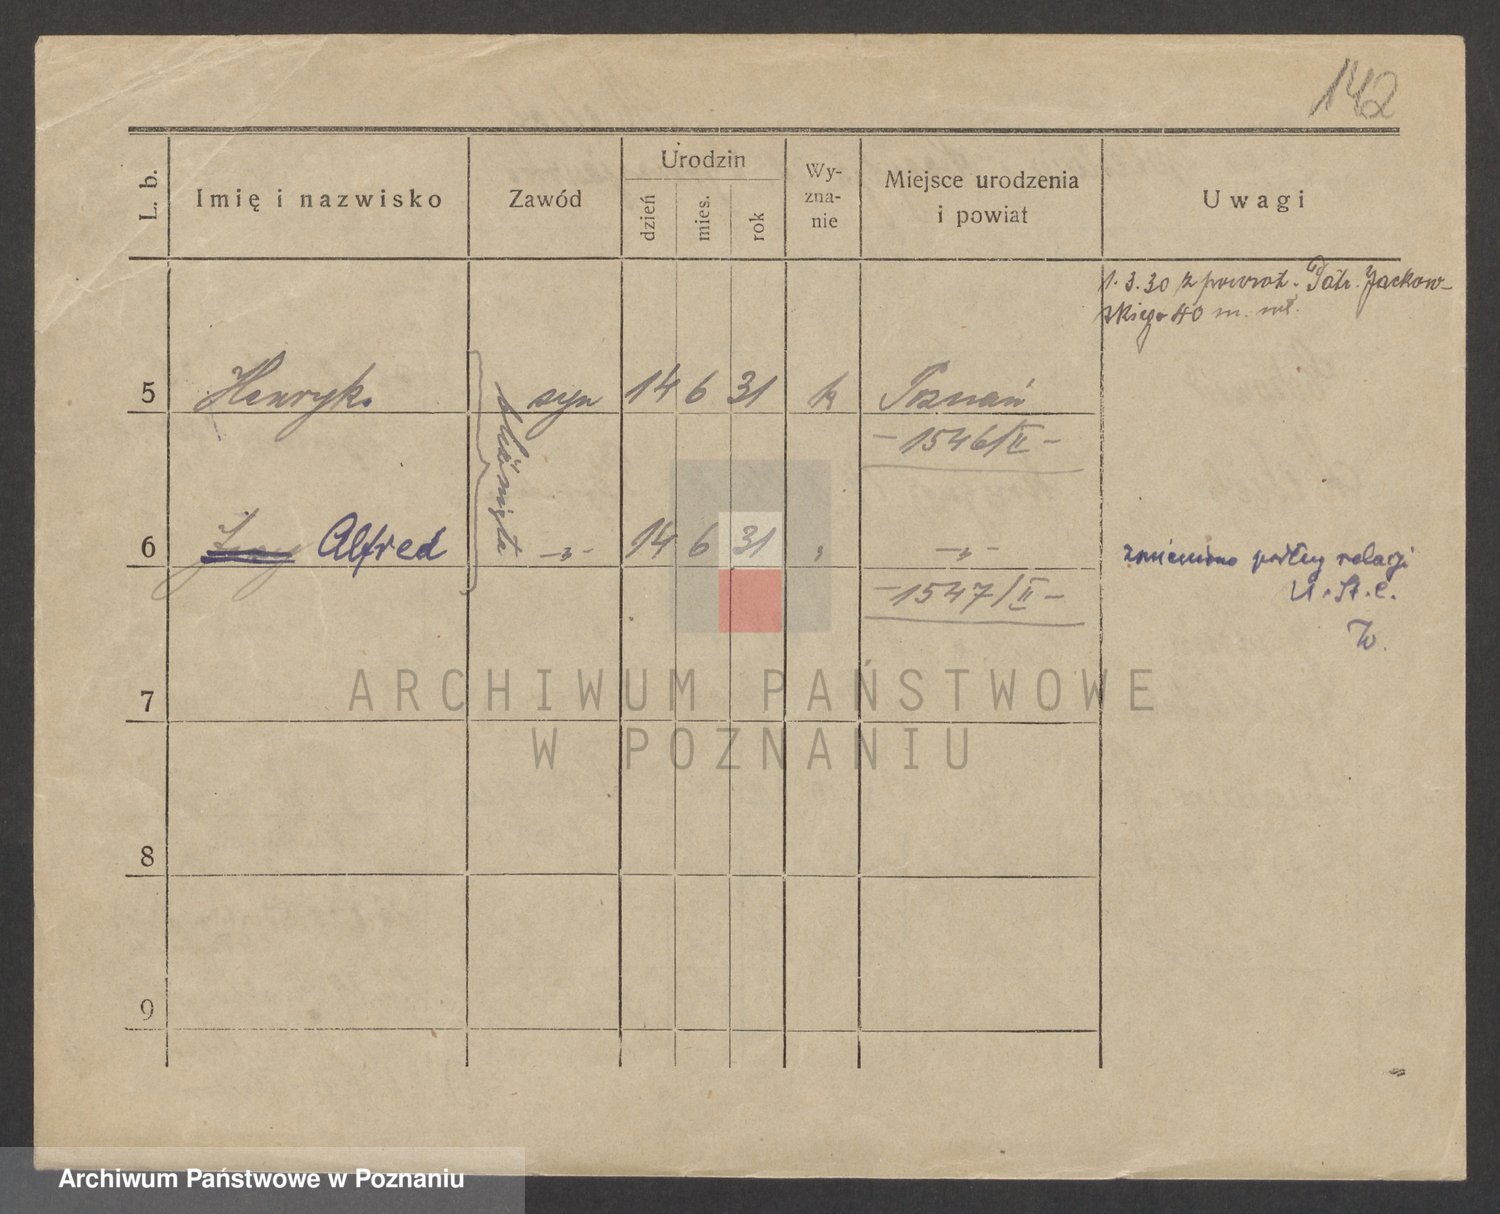 142
L. b.
Imię i nazwisko
Zawód
Urodzin
dzień
mies.
rok
Wy-
zna-
nie
Miejsce urodzenia
i powiat
Uwagi
1.3.30 z powrot. Patr. Jackow-
skiego 40 m. wł.
5 Henryk syn 14 6 31 k Poznań
bliźnięta
-1546/II-
6 Jerzy Alfred -„- 14 6 31 „ -„-
zmieniono podług relacji
U.St.C.
-1547/II-
7
8
9
ARCHIWUM PAŃSTWOWE
W POZNANIU
Archiwum Państwowe w Poznaniu